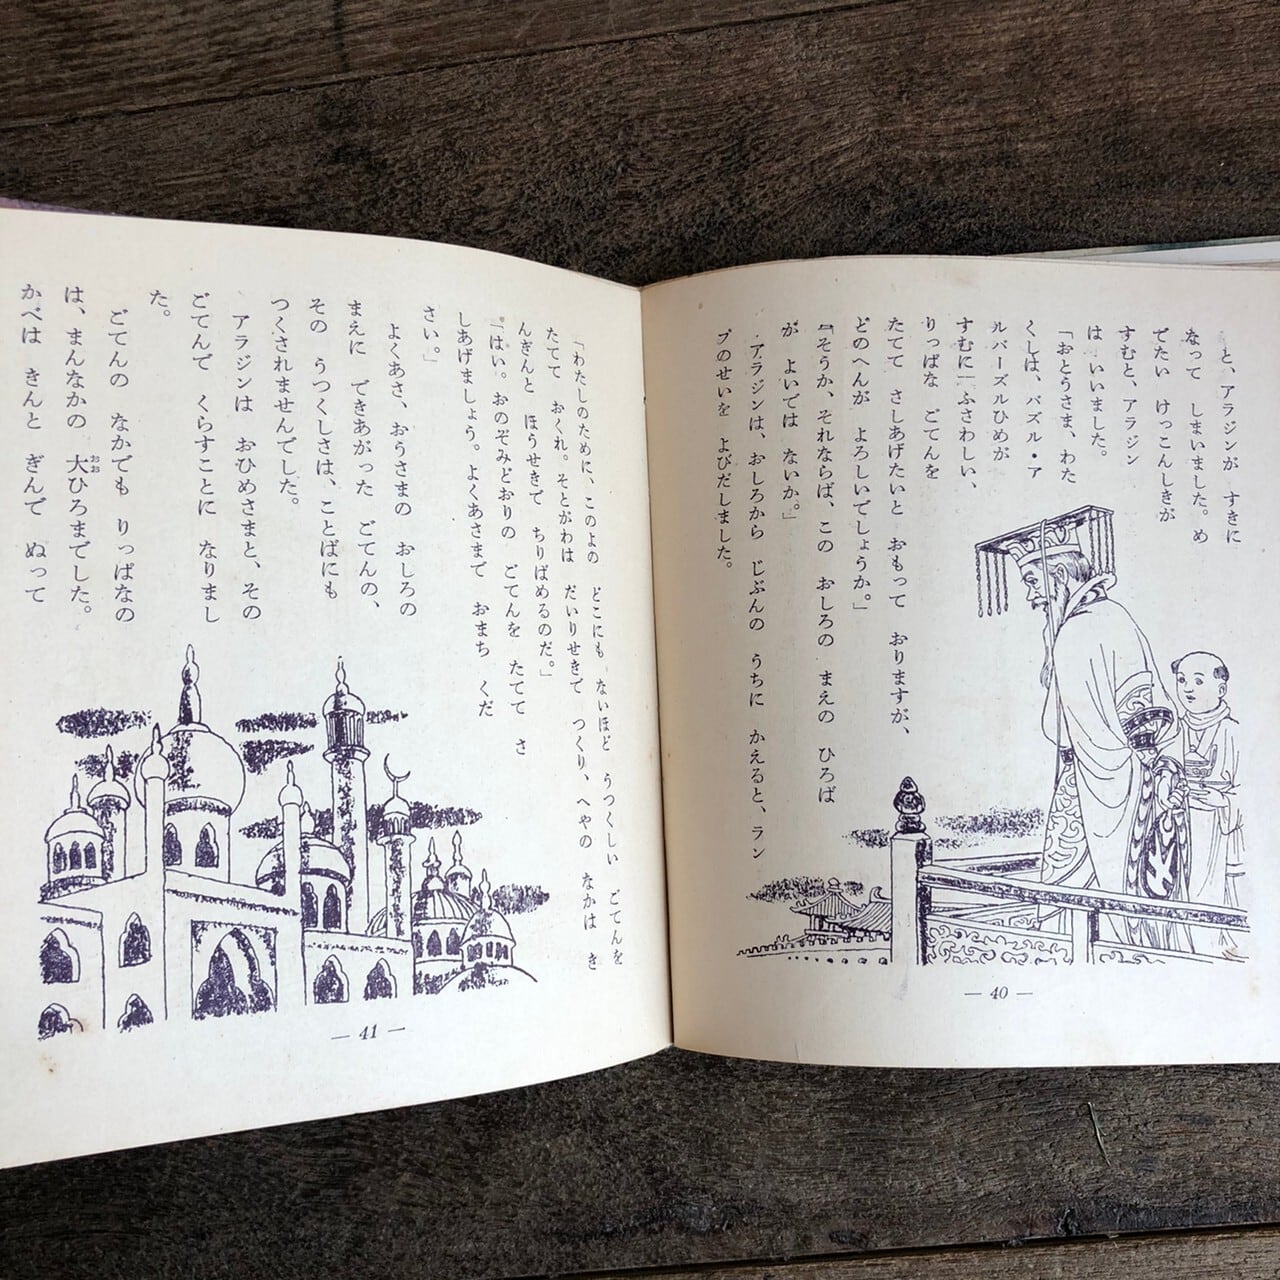 と、アラジンが　すきに
なって　しまいました。め
でたい　けっこんしきが
すむと、アラジン
は　いいました。
「おとうさま、わた
くしは、バズル・ア
ルバーズルひめが
すむに　ふさわしい、
りっぱな　ごてんを
たてて　さしあげたいと　おもって　おりますが、
どのへんが　よろしいでしょうか。」
「そうか、それならば、この　おしろの　まえの　ひろば
が　よいでは　ないか。」
アラジンは、おしろから　じぶんの　うちに　かえると、ラン
プのせいを　よびだしました。
— 40 —
「わたしのために、このよの　どこにも　ないほど　うつくしい　ごてんを
たてて　おくれ。そとがわは　だいりせきで　つくり、へやの　なかは　き
んぎんと　ほうせきで　ちりばめるのだ。」
「はい。おのぞみどおりの　ごてんを　たてて　さ
しあげましょう。よくあさまで　おまち　くだ
さい。」
よくあさ、おうさまの　おしろの
まえに　できあがった　ごてんの、
その　うつくしさは、ことばにも
つくされませんでした。
アラジンは　おひめさまと、その
ごてんで　くらすことに　なりまし
た。
ごてんの　なかでも　りっぱなの
は、まんなかの　大ひろまでした。
おお
かべは　きんと　ぎんで　ぬって
— 41 —